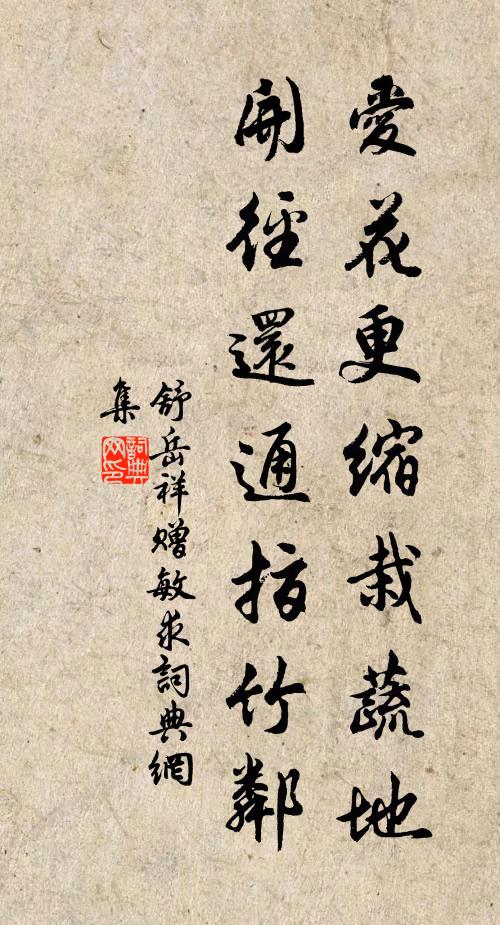 愛花更縮栽蔬地
開徑還通指竹鄰
舒岳祥贈敏求詞典網
集
詞典網印